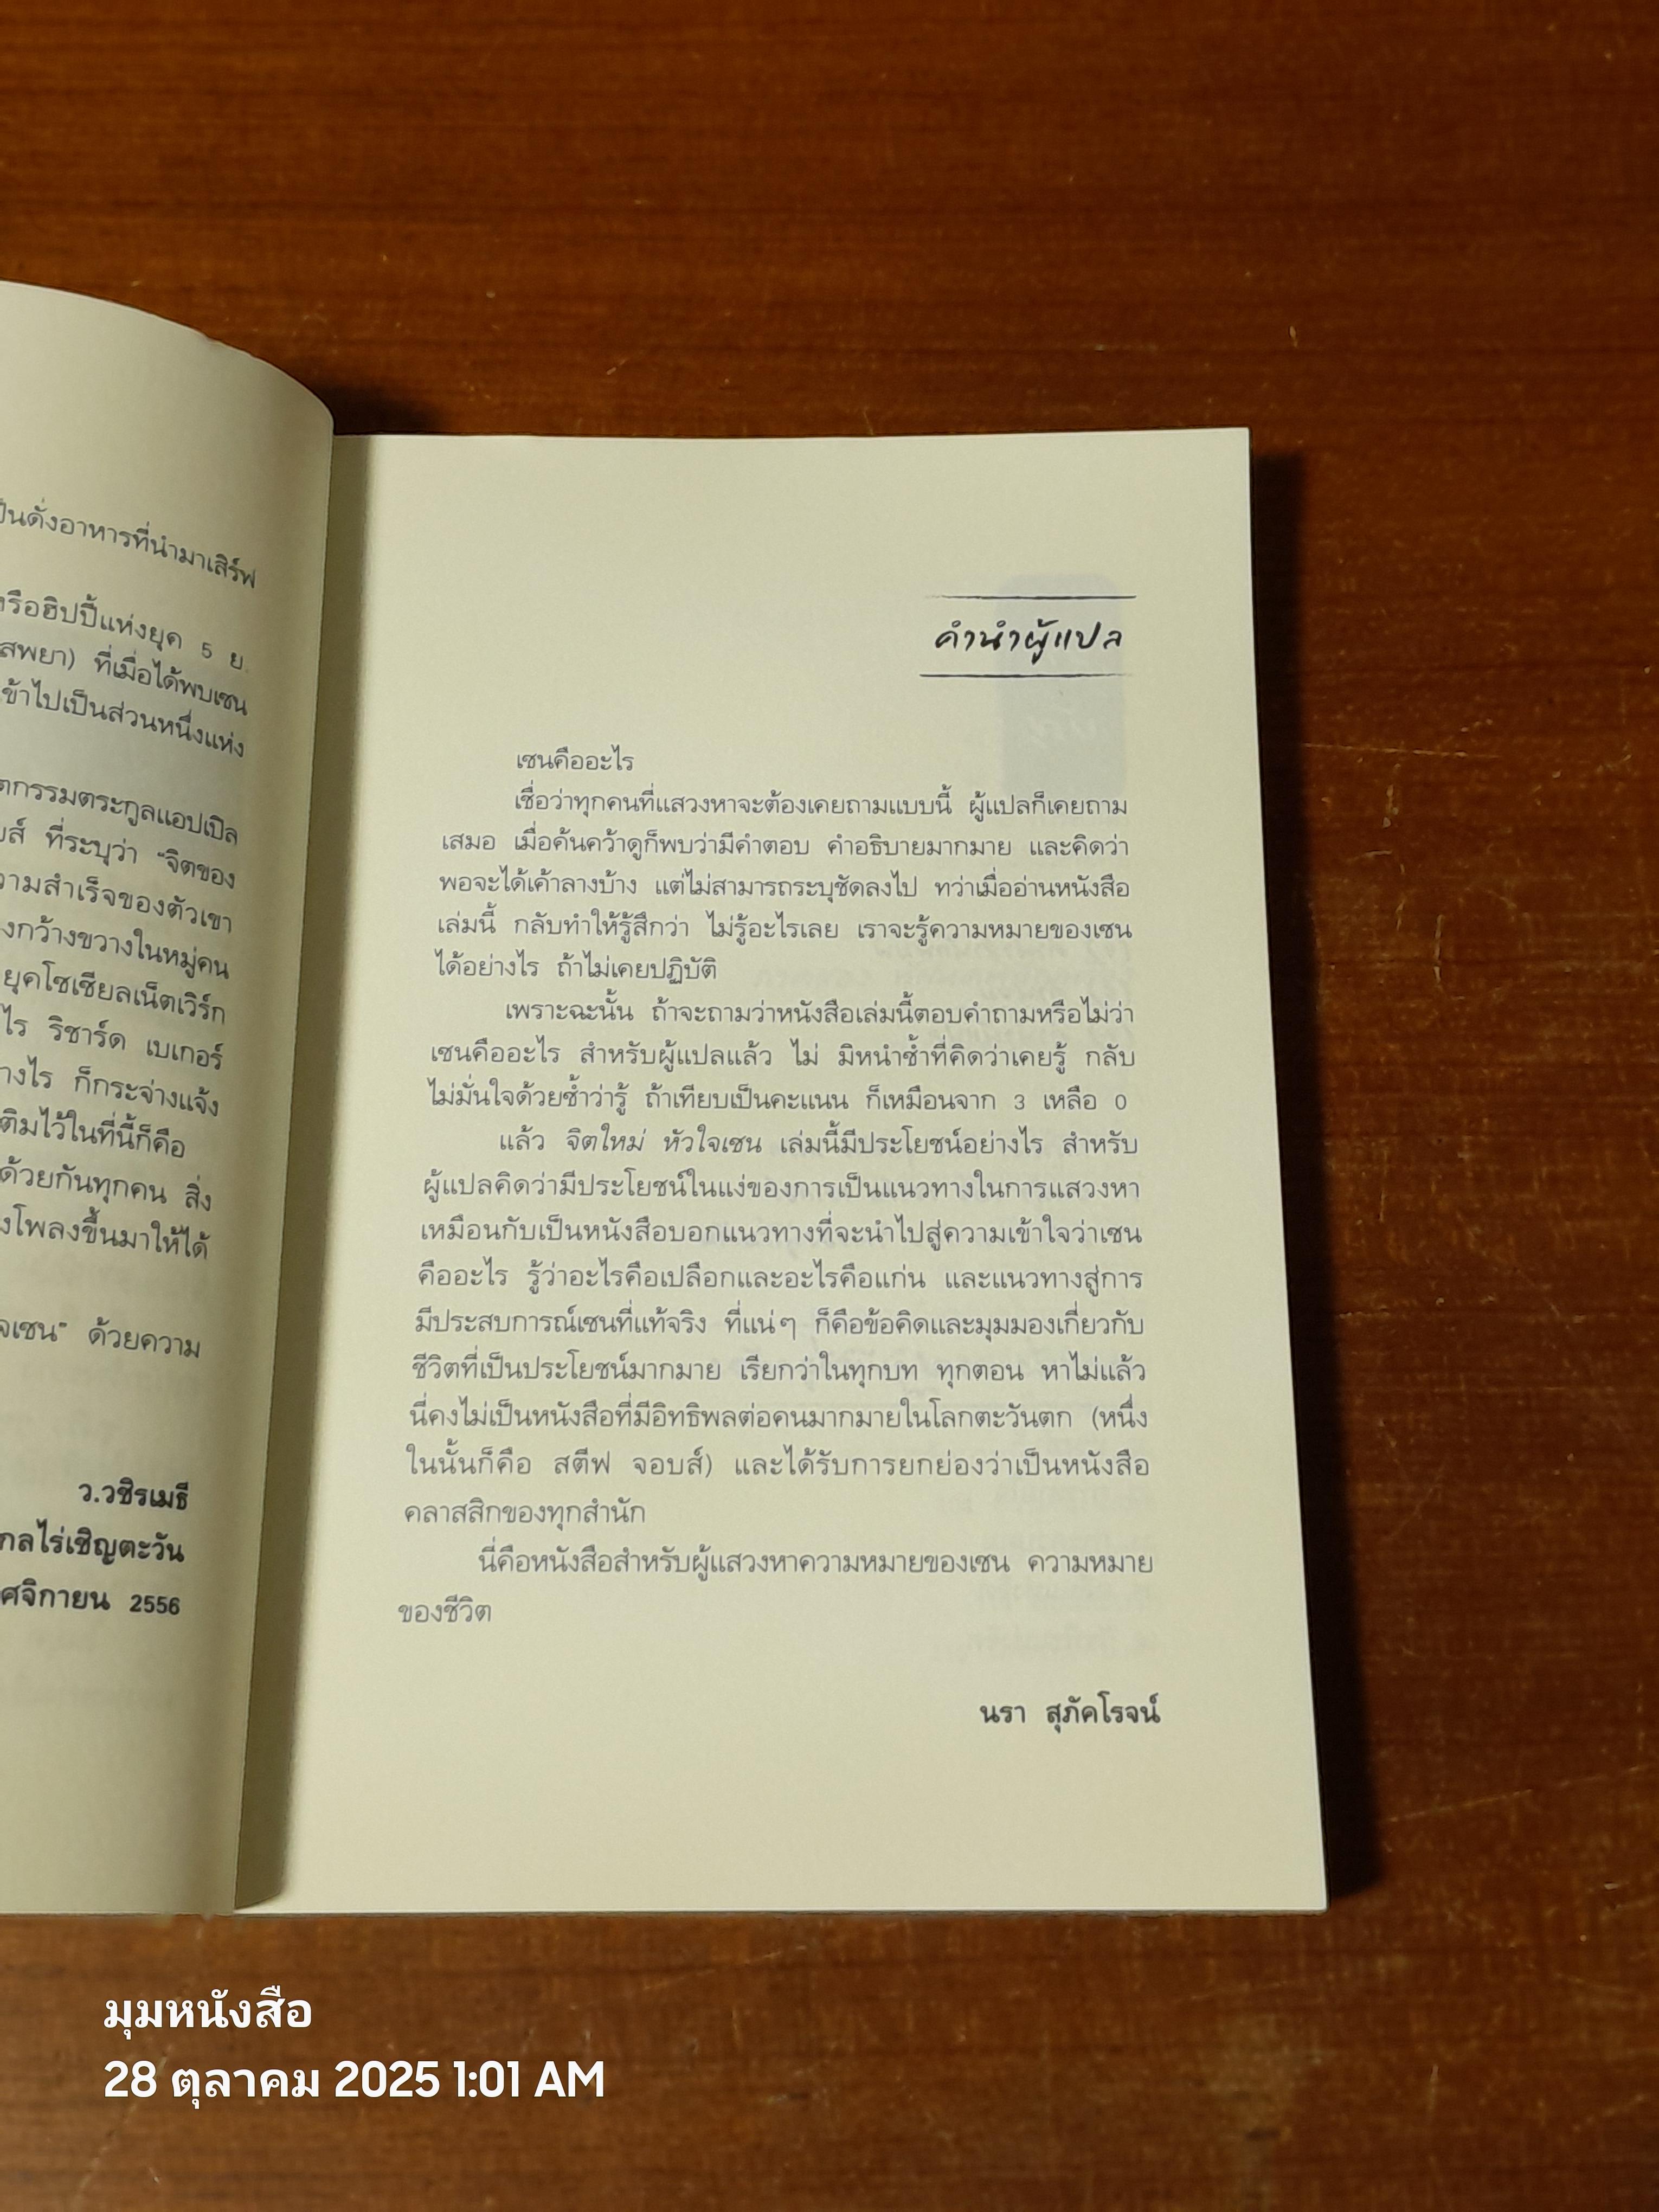 ป็นดั่งอาหารที่นำมาเสิร์ฟ
หรือฮิปปี้แห่งยุค 5 ย.
เสพยา) ที่เมื่อได้พบเซน
เข้าไปเป็นส่วนหนึ่งแห่ง
ตกรรมตระกูลแอปเปิล
บส์ ที่ระบุว่า "จิตของ
วามสำเร็จของตัวเขา
งกว้างขวางในหมู่คน
ยุคโซเชียลเน็ตเวิร์ก
ไร ริชาร์ด เบเกอร์
างไร ก็กระจ่างแจ้ง
ติมไว้ในที่นี้ก็คือ
ด้วยกันทุกคน สิ่ง
งโพลงขึ้นมาให้ได้
จเซน" ด้วยความ
ว.วชิรเมธี
กลไร่เชิญตะวัน
ศจิกายน 2556
คำนำผู้แปล
เซนคืออะไร
เชื่อว่าทุกคนที่แสวงหาจะต้องเคยถามแบบนี้ ผู้แปลก็เคยถาม
เสมอ เมื่อค้นคว้าดูก็พบว่ามีคำตอบ คำอธิบายมากมาย และคิดว่า
พอจะได้เค้าลางบ้าง แต่ไม่สามารถระบุชัดลงไป ทว่าเมื่ออ่านหนังสือ
เล่มนี้ กลับทำให้รู้สึกว่า ไม่รู้อะไรเลย เราจะรู้ความหมายของเซน
ได้อย่างไร ถ้าไม่เคยปฏิบัติ
เพราะฉะนั้น ถ้าจะถามว่าหนังสือเล่มนี้ตอบคำถามหรือไม่ว่า
เซนคืออะไร สำหรับผู้แปลแล้ว ไม่ มิหนำซ้ำที่คิดว่าเคยรู้ กลับ
ไม่มั่นใจด้วยซ้ำว่ารู้ ถ้าเทียบเป็นคะแนน ก็เหมือนจาก 3 เหลือ 0
แล้ว จิตใหม่ หัวใจเซน เล่มนี้มีประโยชน์อย่างไร สำหรับ
ผู้แปลคิดว่ามีประโยชน์ในแง่ของการเป็นแนวทางในการแสวงหา
เหมือนกับเป็นหนังสือบอกแนวทางที่จะนำไปสู่ความเข้าใจว่าเซน
คืออะไร รู้ว่าอะไรคือเปลือกและอะไรคือแก่น และแนวทางสู่การ
มีประสบการณ์เซนที่แท้จริง ที่แน่ๆ ก็คือข้อคิดและมุมมองเกี่ยวกับ
ชีวิตที่เป็นประโยชน์มากมาย เรียกว่าในทุกบท ทุกตอน หาไม่แล้ว
นี่คงไม่เป็นหนังสือที่มีอิทธิพลต่อคนมากมายในโลกตะวันตก (หนึ่ง
ในนั้นก็คือ สตีฟ จอบส์) และได้รับการยกย่องว่าเป็นหนังสือ
คลาสสิกของทุกสำนัก
นี่คือหนังสือสำหรับผู้แสวงหาความหมายของเซน ความหมาย
ของชีวิต
นรา สุภัคโรจน์
มุมหนังสือ
28 ตุลาคม 2025 1:01 AM